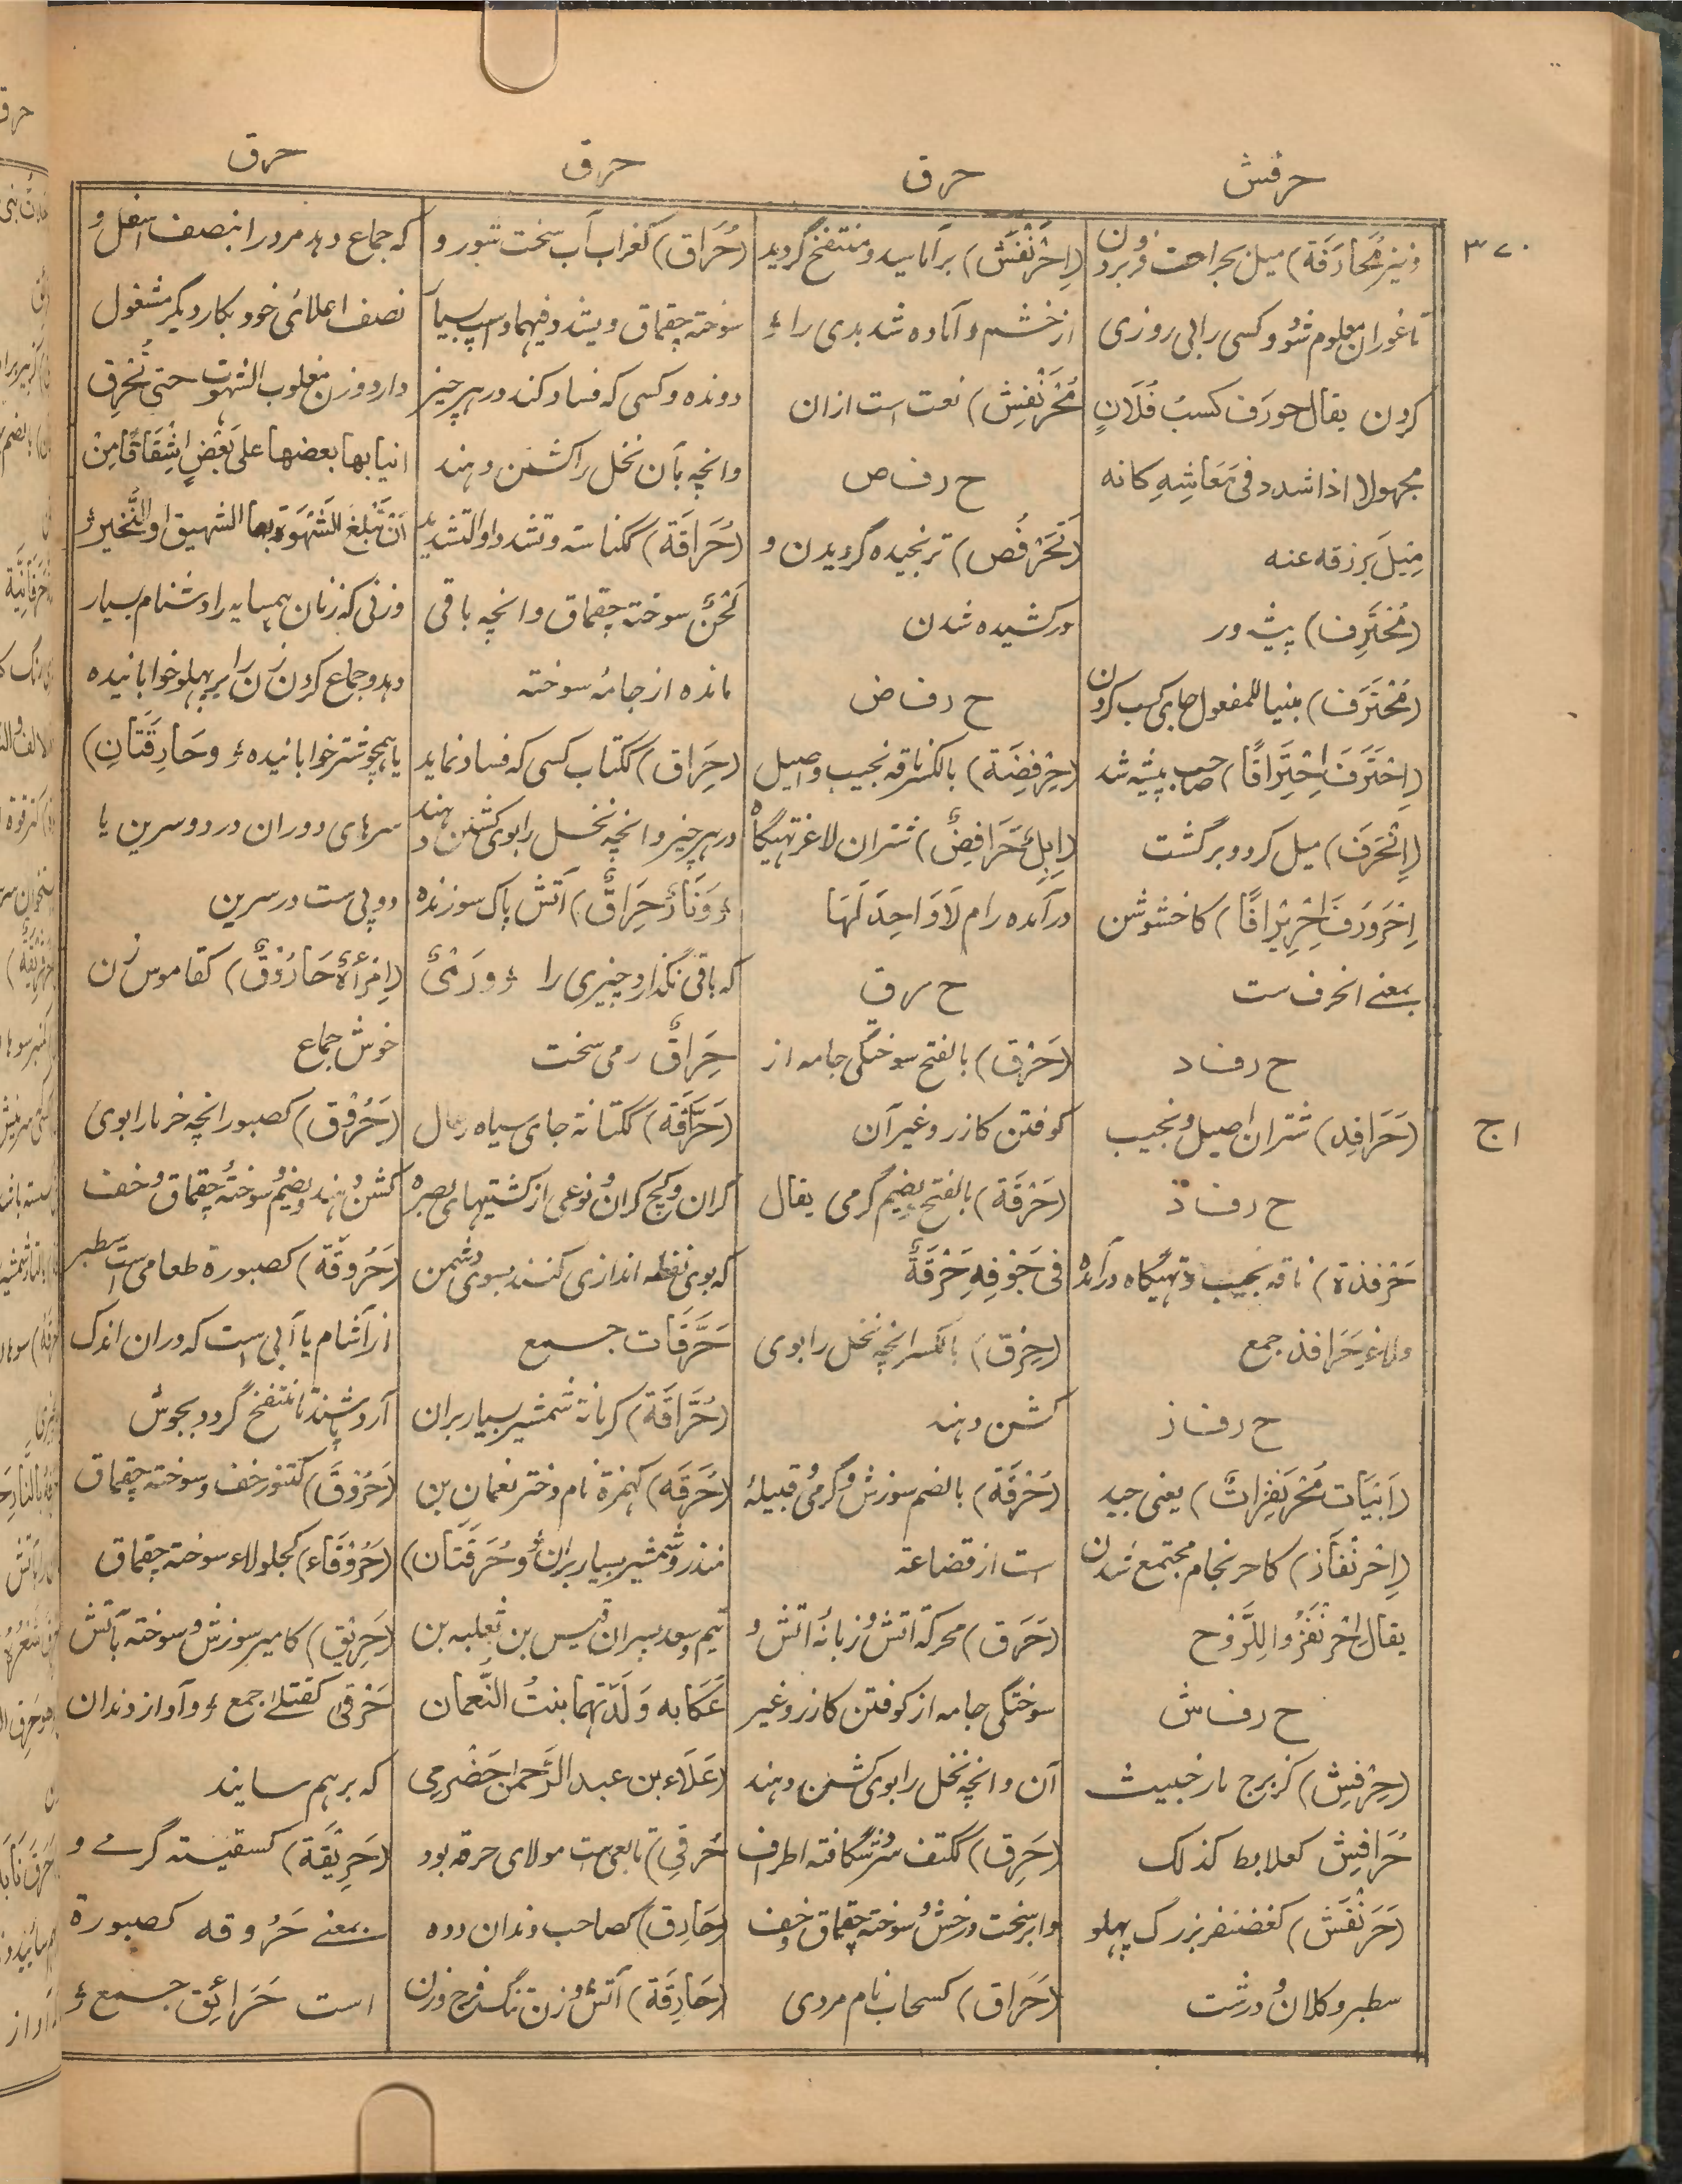 حرفش
حرق
حرق
حرق
۳۷۰
ونیز مُحَارَفَة) میل بجراحت فروبردن
تا غور آن معلوم شود و کسی را بی روزی
کردن یقال حورف کسبُ فُلَانٍ
مجهولا اذا شدد فی مَعَاشِهِ کانه
مِیْلَ بِرزقه عنه
(مُحْتَرِف) پیشه ور
(مُحْتَرَف) مبنیا للمفعول جای کسب کردن
(اِحْتَرَفَ اِحْتِرَافًا) صاحب پیشه شد
(اِنْحَرَفَ) میل کرد و برگشت
اِحْرَوْرَفَ اِحْرِیْرَافًا) کاخشوشن
بمعنے انحرف ست
ح رف د
(حَرَافِد) شتران اصیل و نجیب
اج
ح رف ذ
حَرْفَذَة) ناقه نجیب و تهیگاه درآمده
ولاغر حَرَافِذ جمع
ح رف ز
(اَبْیَات مُحْرَنْفِزَاتٌ) یعنی جید
(اِحْرِنْفَاز) کاحرنجام مجتمع شدن
یقال اِحْرَنْفَزُوا لِلرَّوْح
ح رف ش
(حِرْفِش) کزبرج مار خبیث
حُرَافِش کعلابط کذلک
(حَرَنْفَش) کغضنفر بزرگ پهلو
سطبر و کلان و درشت
(اِحْرَنْفَش) برآماسید و منتفخ گردید
از خشم و آماده شد بدی را ؤ
مُحْرَنْفِش) نعت است ازان
ح رف ص
(تَحَرْفُص) ترنجیده گردیدن و
درکشیده شدن
ح رف ض
(حِرْفِضَة) بالکسر ناقه نجیب و اصیل
(اِبِلٌ حَرَافِضٌ) شتران لاغر تهیگاه
درآمده رام لَا وَاحِدَ لَهَا
ح رق
(حَرْق) بالفتح سوختگی جامه از
کوفتن کازر و غیر آن
(حَرْقَة) بالفتح و یضم گرمی یقال
فی جَوْفِهِ حَرْقَةٌ
(حِرْق) بالکسر انچه نخل را بوی
گشن دهند
(حُرْقَة) بالضم سوزش و گرمی و قبیلهٔ
است از قضاعة
(حَرَق) محرکة آتش و زبانهٔ آتش و
سوختگی جامه از کوفتن کازر و غیر
آن و انچه نخل را بوی گشن دهند
(حَرِق) ککتف شتر شگافته اطراف
وابر سخت درخش و سوخته چقماق و خف
(حَرَاق) کسحاب نام مردی
(حُرَاق) کغراب آب سخت شور و
سوخته چقماق ویشدد فیهما و اسپ بسیار
دونده و کسی که فساد کند در هر چیز
وانچه بآن نخل را گشن دهند
(حُرَاقَة) ککناسة وتشدد او التشدید
لَحْنٌ سوخته چقماق وانچه باقی
مانده از جامهٔ سوخته
(حِرَاق) ککتاب کسی که فساد نماید
در هر چیز وانچه نخل را بوی گشن دهند
ؤ وَنَارٌ حِرَاقٌ) آتش پاک سوزنده
که باقی نگذارد چیزی را ؤ ورَمْیٌ
حِرَاقٌ رمی سخت
(حَرَّاقَة) ککتانة جای سیاه زغال
گران و گچ گران و نوعی از کشتیهای بصره
که بوی نفط اندازی کنند بسوی دشمن
حَرَّاقَات جمع
(حُرَّاقَة) کرمانة شمشیر بسیار بران
(حُرَقَة) کهمزة نام دختر نعمان بن
منذر و شمشیر بسیار بران ؤ و حُرَقَتَان)
تیم و سعد پسران قیس بن ثعلبه بن
عَکَابه وَلَدَتْهُمَا بنتُ النُّعمان
(عَلَاء بن عبد الرَّحمٰن حَضْرمی
حُرَقِی) تابعی ست مولای حرقه بود
(حَارِق) کصاحب دندان دده
(حَارِقَة) آتش و زن تنگ فرج و زن
که جماع دهد مرد را بنصف اسفل و
نصف اعلائی خود بکار دیگر مشغول
دارد و زن مغلوب الشهوت حتی تُحْرِق
انیابها بعضها علی بَعْضٍ اِشْفَاقًا مِنْ
اَنْ تَبْلُغَ الشَّهْوَةُ بها الشهیق او النَّخیر ؤ
وزنی که زنان همسایه را دشنام بسیار
دهد و جماع کردن زن را بر پهلو خوابانیده
یا همچو شتر خوابانیده ؤ وحَارِقَتَانِ)
سرهای دو ران در دو سرین یا
دو پی ست در سرین
(اِمْرَأَةٌ حَارُوْقٌ) کقاموس زن
خوش جماع
(حَرُوْق) کصبور انچه خرما را بوی
گشن دهند و بضم سوختهٔ چقماق و خف
(حَرُوْقَة) کصبورة طعامی است سطبر
از آشام یا آبی است که دران اندک
آرد پاشند تا منتفخ گردد بجوش
(حَرُّوْق) کتنور خف و سوخته چقماق
(حَرُوْقَاء) کجلولاء سوخته چقماق
(حَرِیْق) کامیر سوزش و سوخته بآتش
حَرْقٰی کقتلے جمع ؤ و آواز دندان
که برهم سایند
(حَرِیْقَة) کسفینة گرمے و
بمعنے حَرُوقه کصبورة
است حَرَائِق جمع ؤ